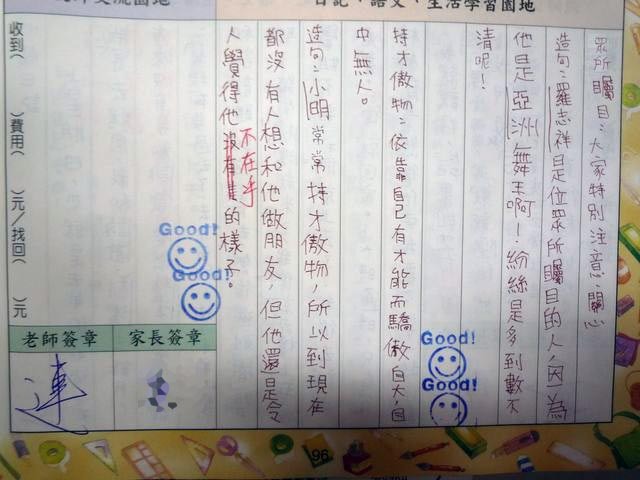 日記、語文、生活學習園地
眾所矚目：大家特別注意、關心
造句：羅志祥是位眾所矚目的人，因為
他是亞洲舞王啊！粉絲是多到數不
清呢！
恃才傲物：依靠自己有才能而驕傲自大，目
中無人。
造句：小明常常恃才傲物，所以到現在
都沒有人想和他做朋友，但他還是令
人覺得他沒有差的樣子。
不在乎
Good!
Good!
Good!
Good!
收到（　）費用（　）元／找回（　）元
老師簽章
家長簽章
連
96